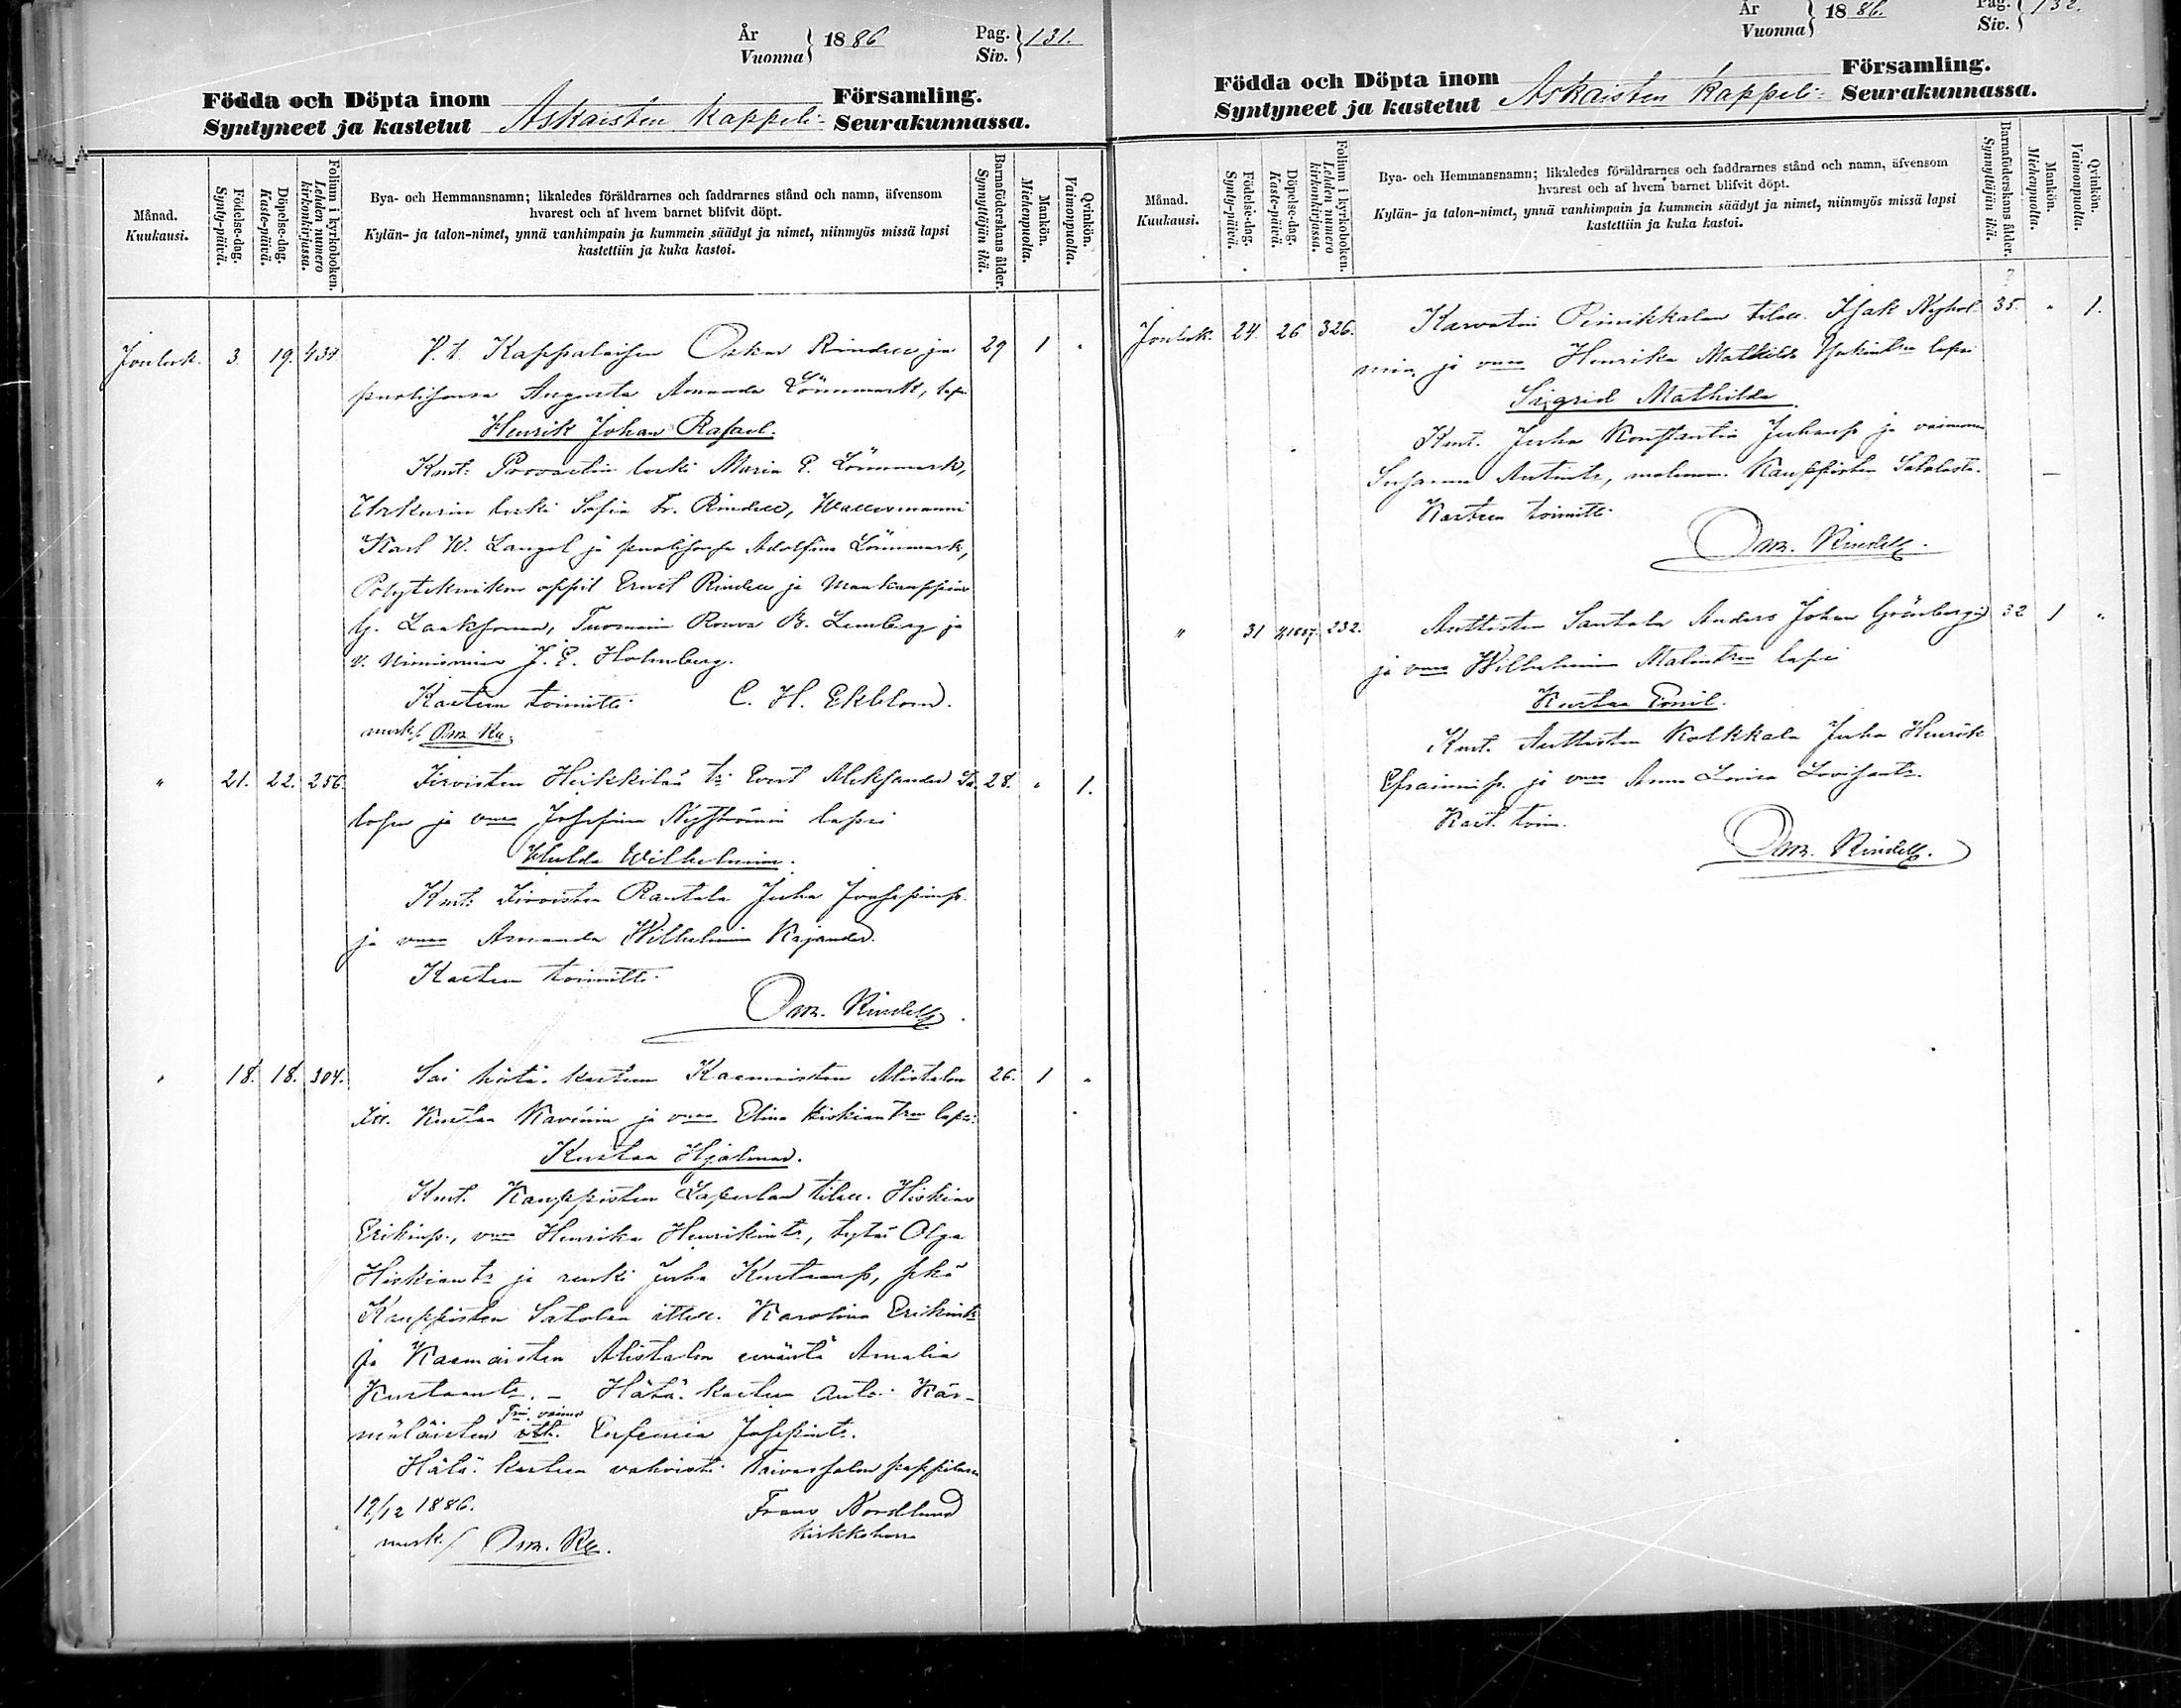 År
Vuonna } 1886 Pag.
Siv. } 131.
Födda och Döpta inom
Syntyneet ja kastetut Askaisten Kappeli- Församling.
Seurakunnassa.
Månad.
Kuukausi.
Födelse-dag.
Synty-päivä.
Döpelse-dag.
Kaste-päivä.
Folium i kyrkoboken.
Lehden numero
kirkonkirjassa.
Bya- och Hemmansnamn; likaledes föräldrarnes och faddrarnes stånd och namn, äfvensom
hvarest och af hvem barnet blifvit döpt.
Kylän- ja talon-nimet, ynnä vanhimpain ja kummein säädyt ja nimet, niinmyös missä lapsi
kastettiin ja kuka kastoi.
Barnaföderskans ålder.
Synnyttäjän ikä.
Mankön.
Miehenpuolta.
Qvinkön.
Vaimonpuolta.
Jouluk. 3. 19. V. t. Kappalaisen Oskar Rindell ja 29 1 "
puolisonsa Augusta Amanda Lönnmark, laps.
Henrik Johan Rafael.
Kmt: Provastin leski Maria E. Lönnmark,
Urkurin leski Sofia Fr. Rindell,
Karl W. Langol ja puolisonsa Adolfina Lönnmark,
Polyteknikon oppil Ernst Rindell ja
G. Laaksonen, Tuomarin Rouva B. Lemberg ja
v. Nimismies J. E. Holmberg.
Kasteen toimitti C. H. Ekblom.
merk/ Osk. Ri.
" 21. 22. 256. Heikkilän Evert Aleksander Sa- 28. " 1.
losen ja vmo Josefina Nyströmin lapsi
Hulda Wilhelmina.
Kmt: Rantala Juha Joosepinp.
ja vmo Amanda Wilhelmina Kajander.
Kasteen toimitti
Osk. Rindell.
" 18. 18. 304. Sai hätä-kasteen Kaamaisten Alistalon 26. 1 "
Itt. Kustaa Kavénin ja vmo Elina Hiskiantren lapsi
Kustaa Hjalmar.
Kmt. Kauppisten tilall. Hiskias
Erikinp., vmo Henrika Henrikint., tytär Olga
Hiskiant. ja renki Juha Kustaanp, sekä
Kauppisten Satolan ittell. Karolina Erikint.
ja Kaamaisten Alistalon emäntä Amalia
Kustaant. – Hätä-kasteen antoi Kär-
mäläisten vaimo Eufemia Josefint.
Hätä-kasteen vahvisti Taivassalon pappilassa
19/12 1886. Frans Nordlund
merk./ Osk. Ri. kirkkoherra
År
Vuonna } 1886. Pag.
Siv. } 132.
Födda och Döpta inom
Syntyneet ja kastetut Askaisten Kappeli- Församling.
Seurakunnassa.
Månad.
Kuukausi.
Födelse-dag.
Synty-päivä.
Döpelse-dag.
Kaste-päivä.
Folium i kyrkoboken.
Lehden numero
kirkonkirjassa.
Bya- och Hemmansnamn; likaledes föräldrarnes och faddrarnes stånd och namn, äfvensom
hvarest och af hvem barnet blifvit döpt.
Kylän- ja talon-nimet, ynnä vanhimpain ja kummein säädyt ja nimet, niinmyös missä lapsi
kastettiin ja kuka kastoi.
Barnaföderskans ålder.
Synnyttäjän ikä.
Mankön.
Miehenpuolta.
Qvinkön.
Vaimonpuolta.
Jouluk. 24. 26 326. Karvatin tilall. Isak Nyhol- 35. " 1.
min ja vmo Henrika Mathilda lapsi
Sigrid Mathilda.
Kmt. Juha Konstantin Juhanp ja vaimonsa
Susanna Antint., molemm. Kauppisten Satolasta.
Kasteen toimitti
Osk. Rindell.
" 31 232. Auttisten Santala Anders Johan Grönbergin 32 1 "
ja vmo Wilhelmina lapsi
Kustaa Emil.
Kmt. Auttisten Kolkkala Juha Henrik
Efraiminp. ja vmo Anna Lovisa
Kast. toim.
Osk. Rindell.